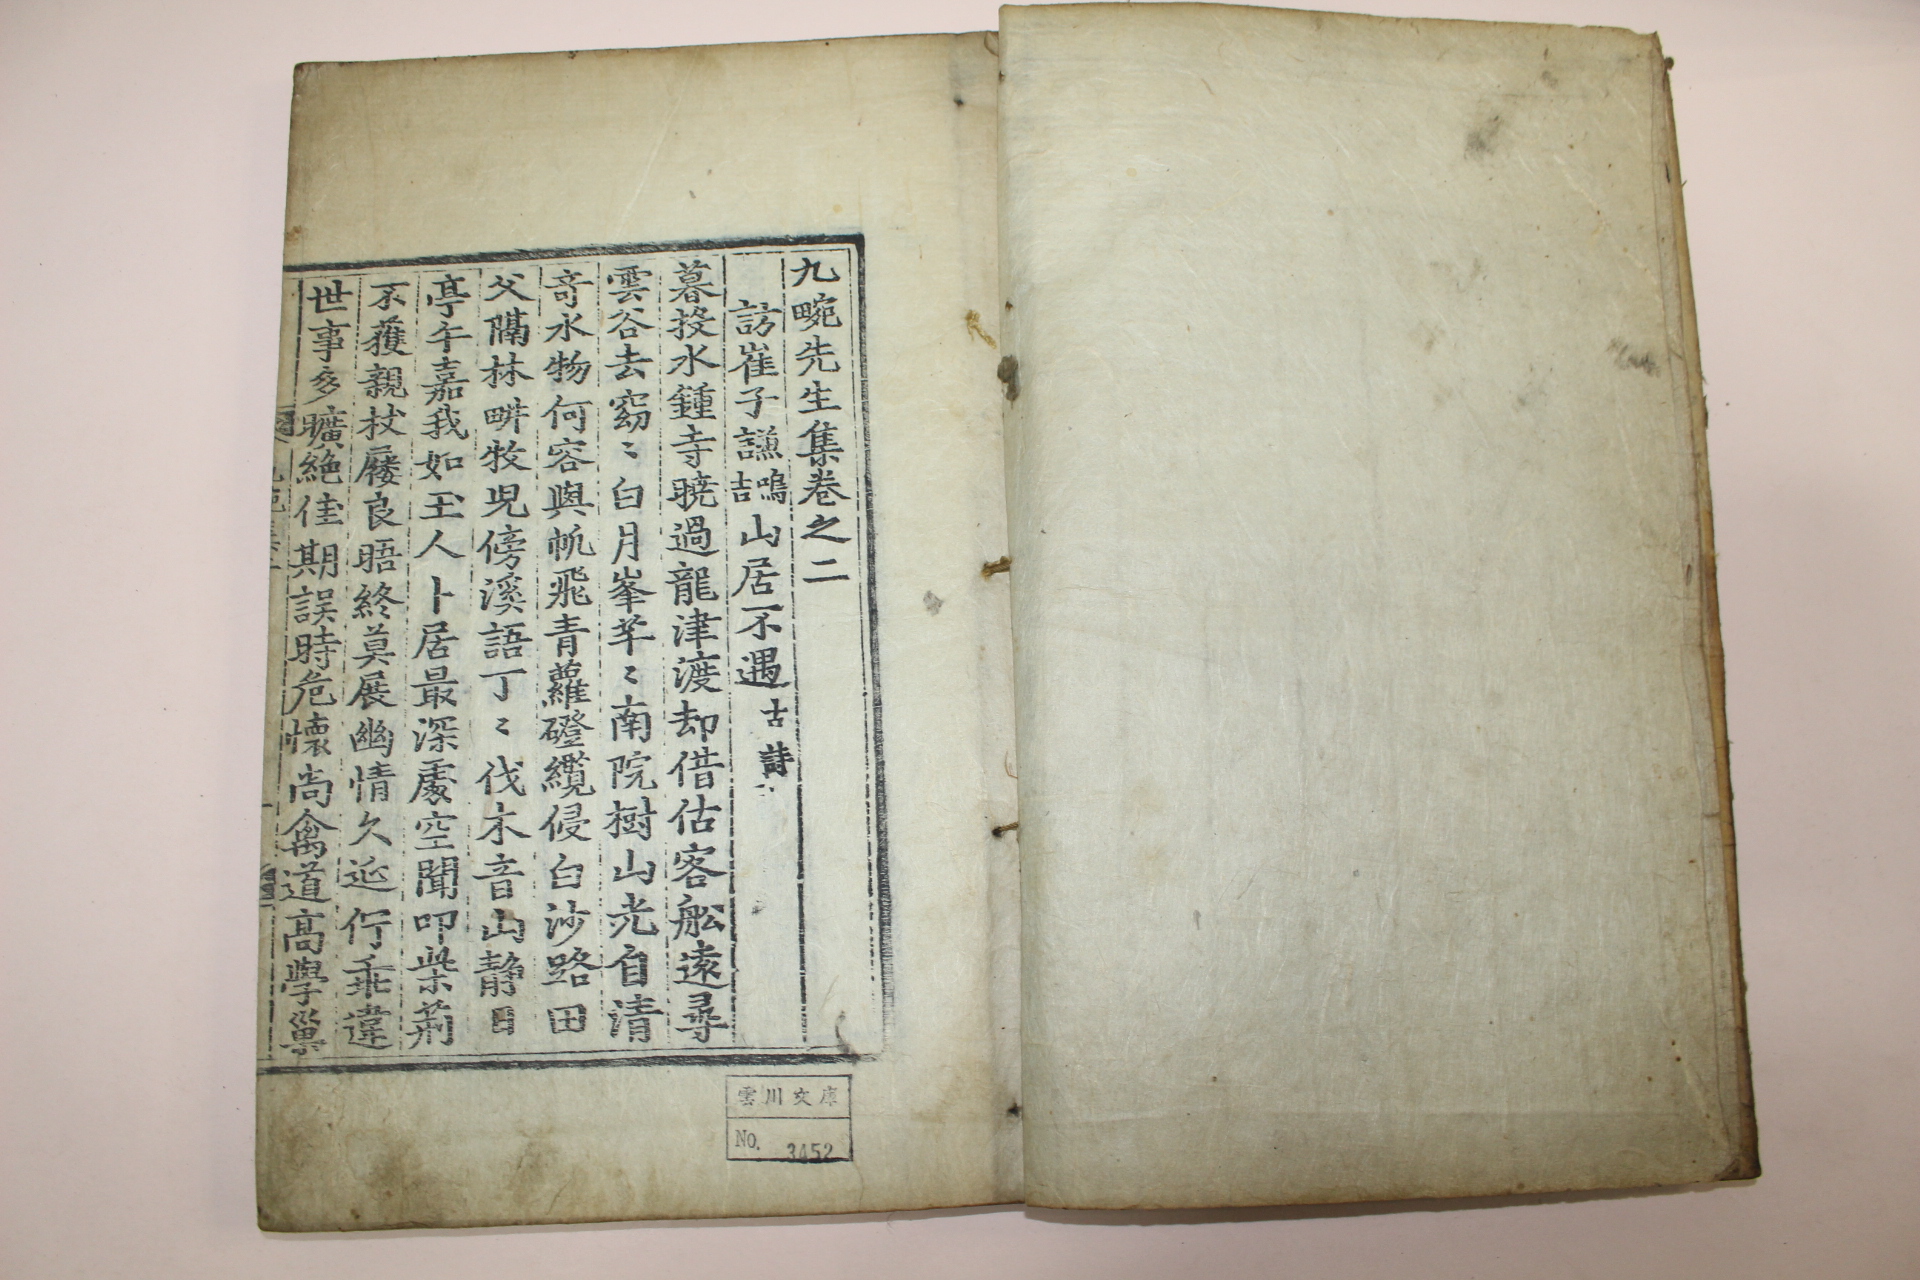 九畹先生集卷之二
訪崔子謙鳴吉山居不遇古詩
暮投水鍾寺曉過龍津渡却借估客舩遠尋
雲谷去窈〻白月峯芊〻南院樹山光自清
奇水物何容與帆飛青蘿磴纜侵白沙路田
父隔林畊牧児傍溪語丁〻伐木音山靜日
亭午嘉我如玉人卜居最深處空聞叩柴荊
不獲親杖屨良晤終莫展幽情久延佇乖違
世事多曠絶佳期誤時危懷尚禽道高學巢
雲川文庫
No. 3452